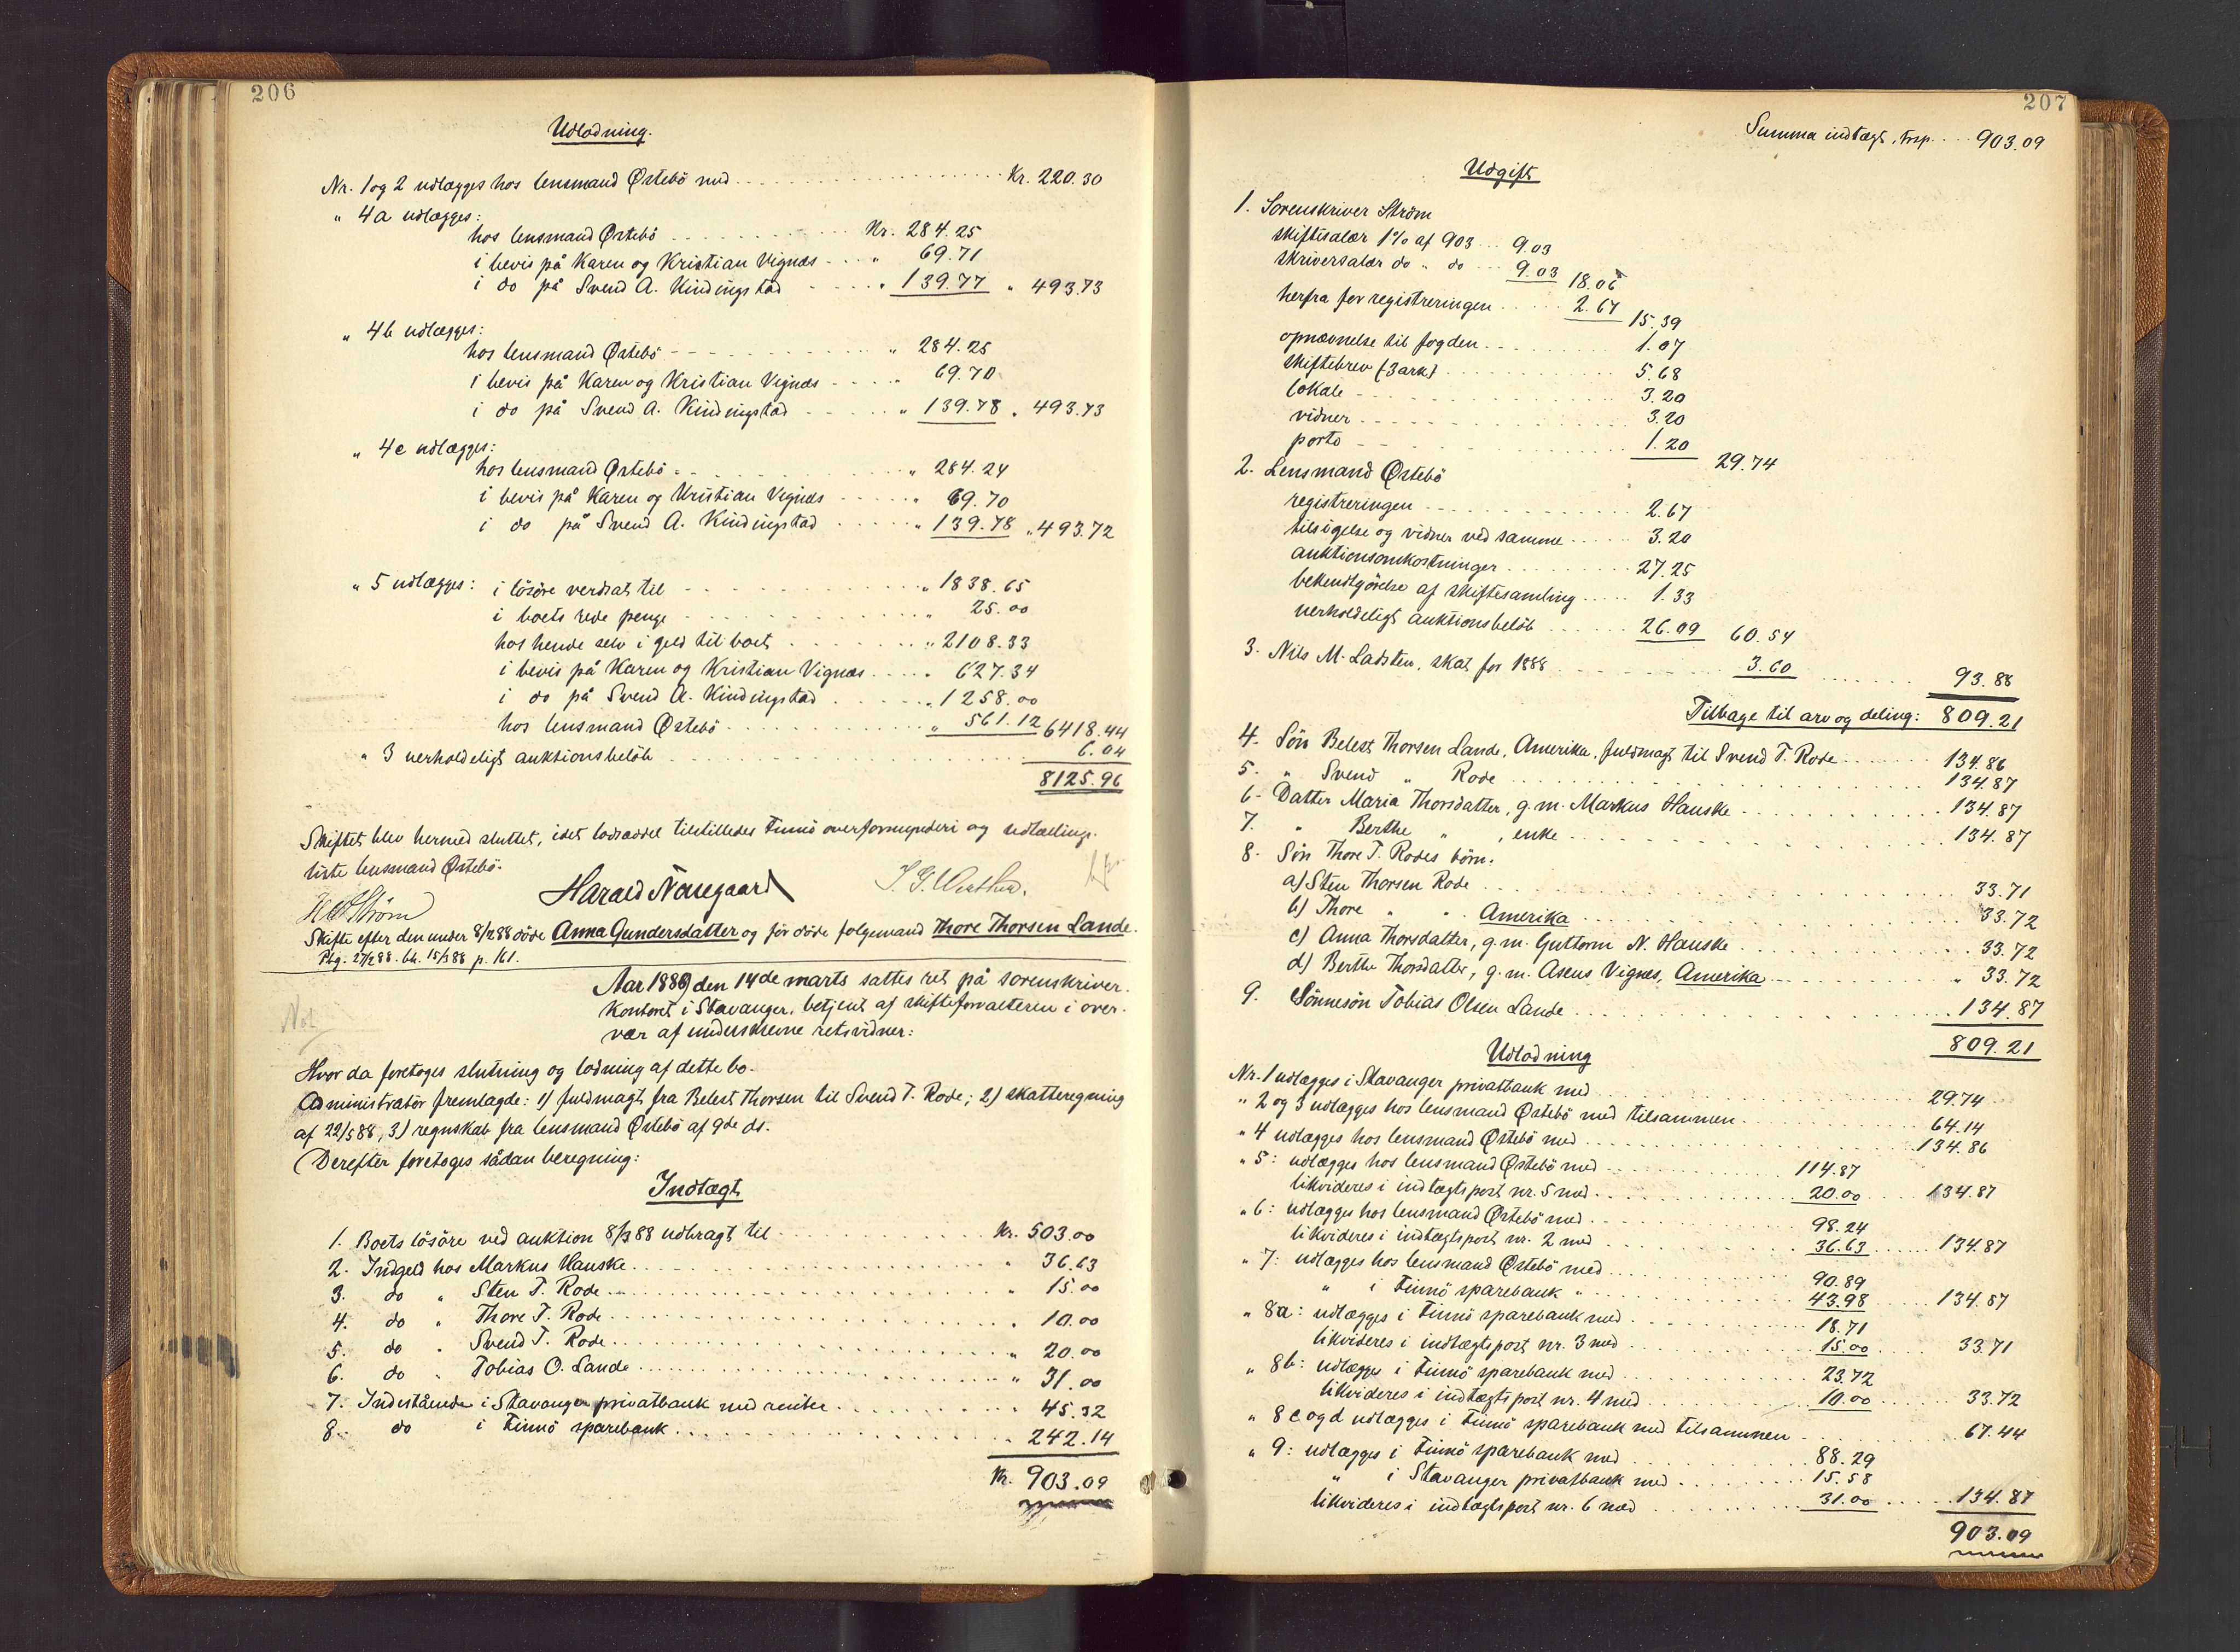 206
Udlodning.
Nr. 1 og 2 udlægges hos lensmand Østebö med Kr. 220.30
" 4a udlægges:
hos lensmand Østebö Kr. 284.25
i bevis på Karen og Kristian Vignæs " 69.71
i do på Svend A. Kindingstad " 139.77 " 493.73
" 4b udlægges:
hos lensmand Østebö " 284.25
i bevis på Karen og Kristian Vignæs " 69.70
i do på Svend A. Kindingstad " 139.78 " 493.73
" 4c udlægges:
hos lensmand Østebö " 284.24
i bevis på Karen og Kristian Vignæs " 69.70
i do på Svend A. Kindingstad " 139.78 " 493.72
" 5 udlægges: i lösöre verdsat til " 1838.65
i boets rede penge " 25.00
hos hende selv i geld til boet " 2108.33
i bevis på Karen og Kristian Vignæs " 627.34
i do på Svend A. Kindingstad " 1258.00
hos lensmand Østebö " 561.12 6418.44
" 3 uerholdeligt auktionsbelöb 6.04
8125.96
Skiftet blev hermed sluttet, idet lodseddel tilstilledes Finnö overformynderi og udtællings-
liste lensmand Østebö.
Ström Harald Norregaard
Skifte efter den under 8/2 88 døde Anna Gundersdatter og för döde følgemand Thore Thorsen Lande.
Reg. 27/2 88. bh. 15/3 88 p. 161.
Aar 1889 den 14de marts sattes ret på sorenskriver-
kontoret i Stavanger, betjent af skifteforvalteren i over-
vær af underskrevne retsvidner:
Hvor da foretoges slutning og lodning af dette bo.
Administratör fremlagde: 1) fuldmagt fra Belest Thorsen til Svend T. Rode; 2) skatteregning
af 22/5 88, 3) regnskab fra lensmand Østebö af 9de ds.
Derefter foretoges sådan beregning:
Indtægt
1. Boets lösöre ved auktion 8/3 88 udbragt til Kr. 503.00
2. Indgeld hos Markus Hauske " 36.63
3. do " Sten T. Rode " 15.00
4. do " Thore T. Rode " 10.00
5. do " Svend T. Rode " 20.00
6. do " Tobias O. Lande " 31.00
7. Indestående i Stavanger privatbank med renter " 45.32
8. do i Finnö sparebank " 242.14
Kr. 903.09
207
Summa indtægt, trsp. 903.09
Udgift
1. Sorenskriver Ström
skiftesalær 1% af 903 9.03
skriversalær do " do 9.03 18.06
herfra for registreringen 2.67 15.39
opnævnelse til fogden 1.07
skiftebrev (3 ark) 5.68
lokale 3.20
vidner 3.20
porto 1.20 29.74
2. Lensmand Østebö
registreringen 2.67
tilsigelse og vidner ved samme 3.20
auktionsomkostninger 27.25
bekendtgörelse af skiftesamling 1.33
uerholdeligt auktionsbelöb 26.09 60.54
3. Nils M. Ladsten, skat for 1888 3.60 93.88
Tilbage til arv og deling: 809.21
4. Sön Belest Thorsen Lande, Amerika, fuldmagt til Svend T. Rode 134.86
5. " Svend " Rode 134.87
6. Datter Maria Thorsdatter, g.m. Markus Hauske 134.87
7. " Berthe " , enke 134.87
8. Sön Thore T. Rodes börn:
a) Sten Thorsen Rode 33.71
b) Thore " " Amerika 33.72
c) Anna Thorsdatter, g.m. Guttorm N. Hauske 33.72
d) Berthe Thorsdatter, g.m. Aseus Vignes, Amerika " 33.72
9. Sönnesön Tobias Olsen Lande 134.87
809.21
Udlodning
Nr. 1 udlægges i Stavanger privatbank med 29.74
" 2 og 3 udlægges hos lensmand Østebö med tilsammen 64.14
" 4 udlægges hos lensmand Østebö med 134.86
" 5: udlægges hos lensmand Østebö med 114.87
likvideres i indtægtspost nr. 5 med 20.00 134.87
" 6: udlægges hos lensmand Østebö med 98.24
likvideres i indtægtspost nr. 2 med 36.63 134.87
" 7: udlægges hos lensmand Østebö med 90.89
" i Finnö sparebank " 43.98 134.87
" 8a: udlægges i Finnö sparebank med 18.71
likvideres i indtægtspost nr. 3 med 15.00 33.71
" 8b: udlægges i Finnö sparebank med 23.72
likvideres i indtægtspost nr. 4 med 10.00 33.72
" 8c og d udlægges i Finnö sparebank med tilsammen 67.44
" 9: udlægges i Finnö sparebank med 88.29
" i Stavanger privatbank med 15.58
likvideres i indtægtspost nr. 6 med 31.00 134.87
903.09